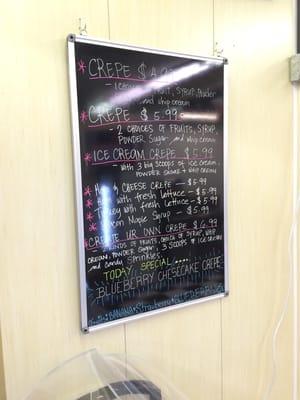 * CREPE $ 4.99
FRUIT, SYRUP, Powder
and whip cream
* CREPE $ 5.99
- 2 CHOICES OF FRUITS, SYRUP,
POWDER Sugar and whip cream
* ICE CREAM CREPE $ 5.99
- with 3 big scoops of ice cream,
POWDER SUGAR + whip cream
* & CHEESE CREPE - $ 5.99
* with fresh lettuce - $ 5.99
* Turkey with fresh Lettuce - $ 5.99
* Maple Syrup - $ 5.99
* CREATE UR OWN CREPE $ 6.99
OF FRUITS, CHOICE OF SYRUP, WHIP
CREAM, POWDER Sugar, 3 SCOOPS of ICE CREAM
and Candy Sprinkles
TODAY SPECIAL....
BLUEBERRY CHESECAKE CREPE
BANANA Strawberry BLUEBERRY